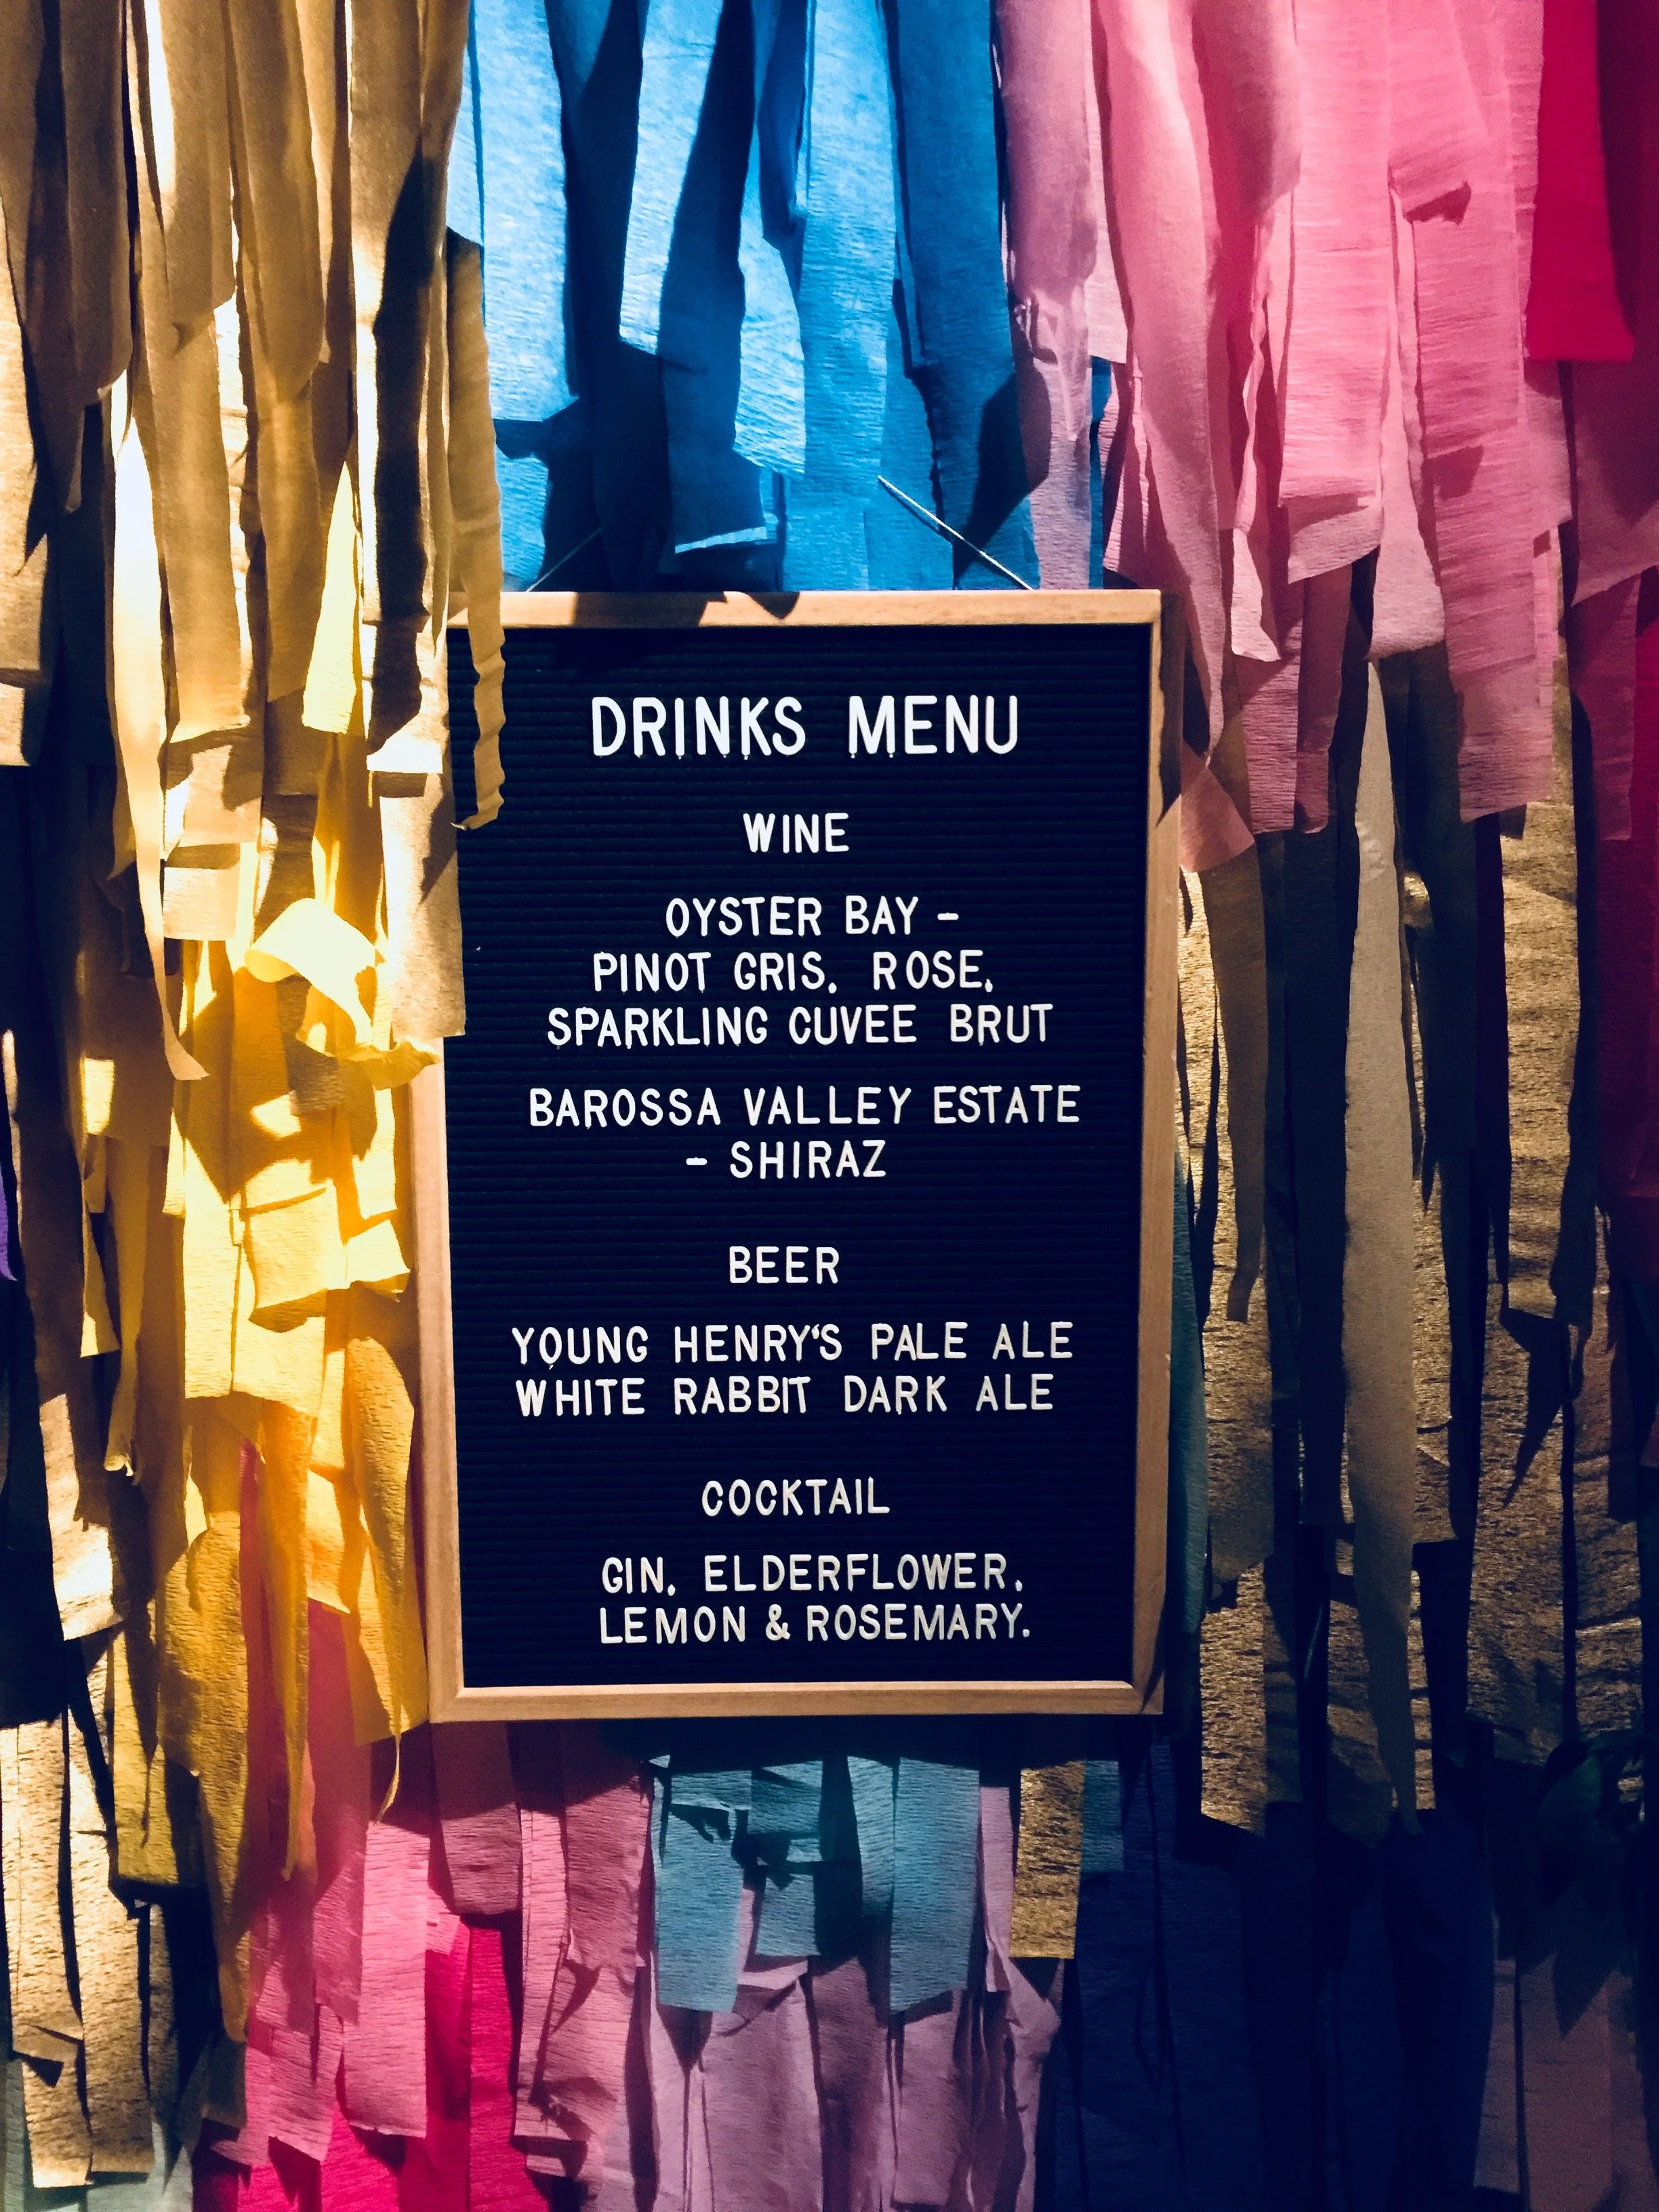 DRINKS MENU
WINE
OYSTER BAY -
PINOT GRIS, ROSE,
SPARKLING CUVEE BRUT
BAROSSA VALLEY ESTATE
- SHIRAZ
BEER
YOUNG HENRY'S PALE ALE
WHITE RABBIT DARK ALE
COCKTAIL
GIN, ELDERFLOWER,
LEMON & ROSEMARY.